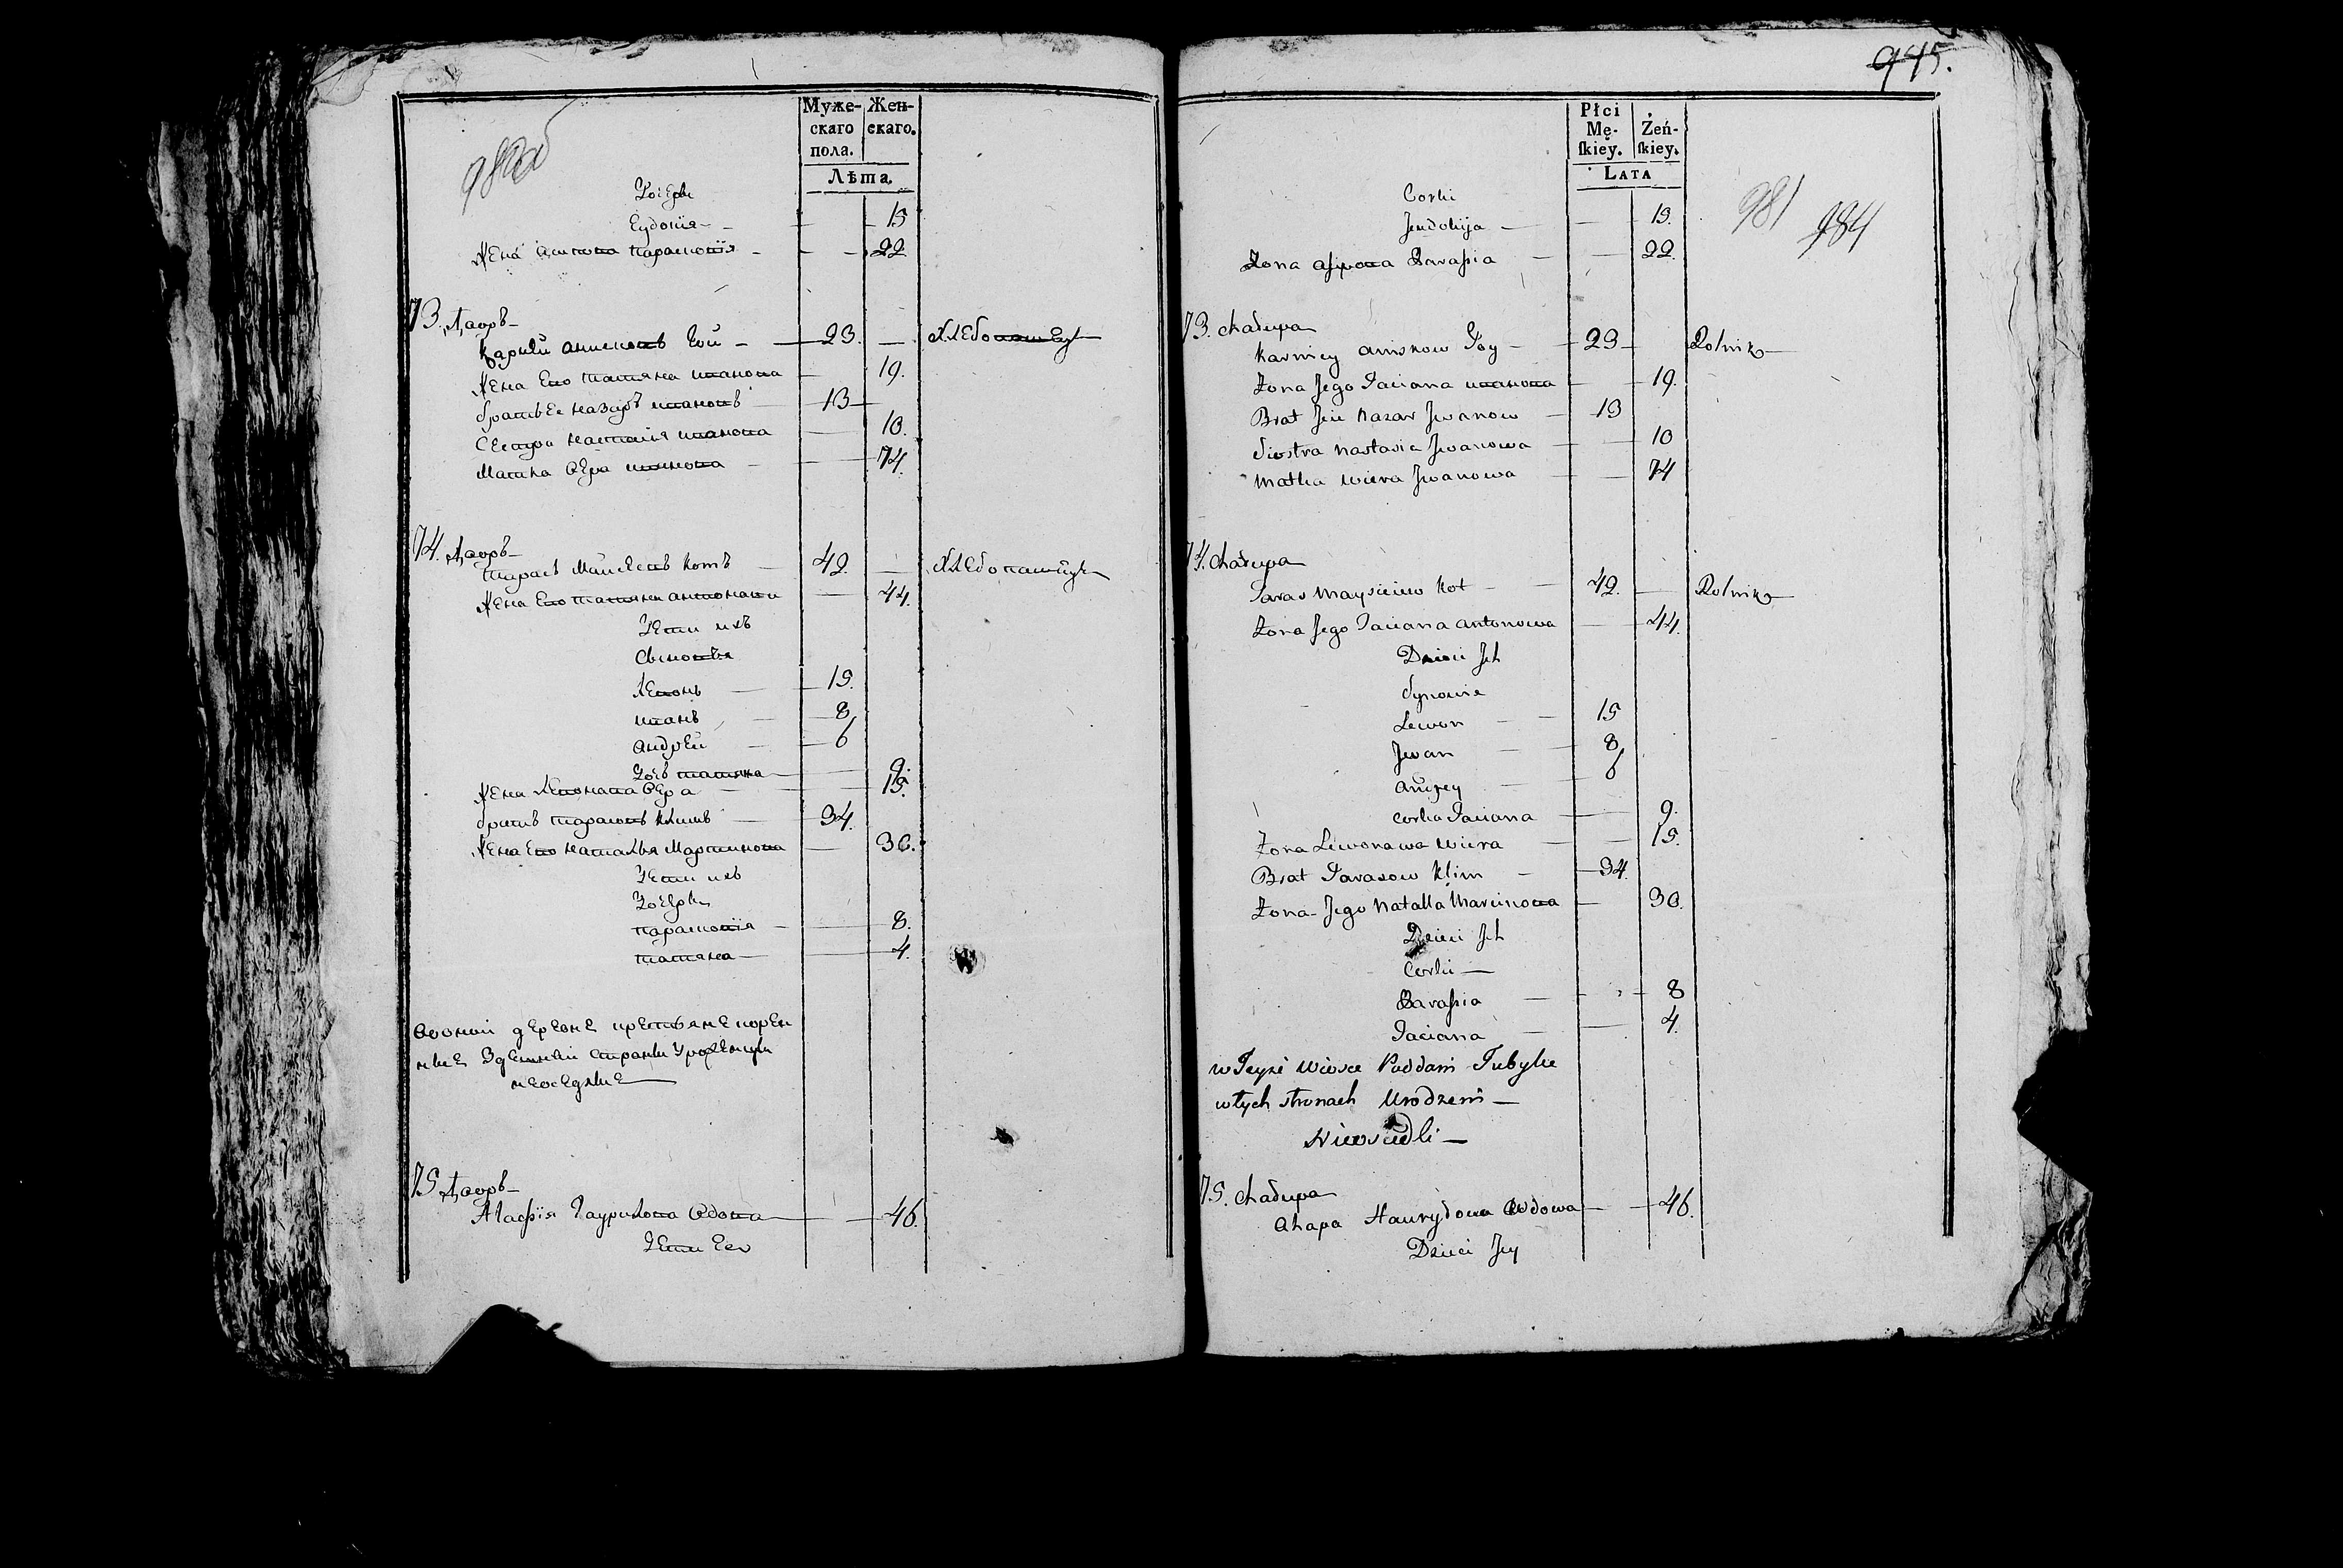 Муже-
скаго
пола.
Жен-
скаго.
Лѣта.
Дочерѣ
Еудокія 15
Жена Парасковія 22
73. Дворъ
Карнѣй Анисковъ Гой 23. Хлебопашецъ
Жена Его татяна иванова 19.
братъ Ее назаръ ивановъ 13
Сестра настасія иванова 10.
Матка Вера иванова 74.
74. Дворъ
Тарасъ Майсеевъ Котъ 42. Хлебопашецъ
Жена Его татяна антонова 44.
Дети ихъ
Сыновья
Левонъ 15.
иванъ 8
андрей 6
Дочъ татяна 9.
Жена левонова Вера 15.
братъ тарасовъ Климъ 34.
Жена Его наталья Мартинова 30.
Дети ихъ
Дочерѣ
парасковія 8.
татяна 4.
Вовной деревне крестьяне корен
ные Здешней Страны Уроженцы
неоседлые
75 Дворъ
Агафія Гаурилова Вдова 46.
Дети Еео
945.
Płci
Mę-
ſkiéy.
Żeń-
ſkiey.
LATA
981 984
Corki
Jeudokija 15.
Żona Parasia 22.
73. Chałupa
Karniey aniskow Goy 23 Rolnik
Żona Jego Taciana иванова 19.
Brat Jeie Nazar Jwanow 13
Siostra Nastasia Jwanowa 10
Matka Wiera Jwanowa 74
74. Chałupa
Taras Maysieiew Kot 42. Rolnik
Żona Jego Taciana Antonowa 44.
Dzieci Jch
Synowie
Lewon 15
Jwan 8
Andrey 6
Corka Taciana 9.
Żona Lewonawa Wiera 15.
Brat Tarasow Klim 34.
Żona Jego Natalla Marcinowa 30.
Dzieci Jch
Corki
Parasia 8
Taciana 4.
w Teyże Wiosce Poddani Tubylce
w tych stronach Urodzeni
Nieosiedli
75. Chałupa
Ahapa Haurydowa Wdowa 46.
Dzieci Jey